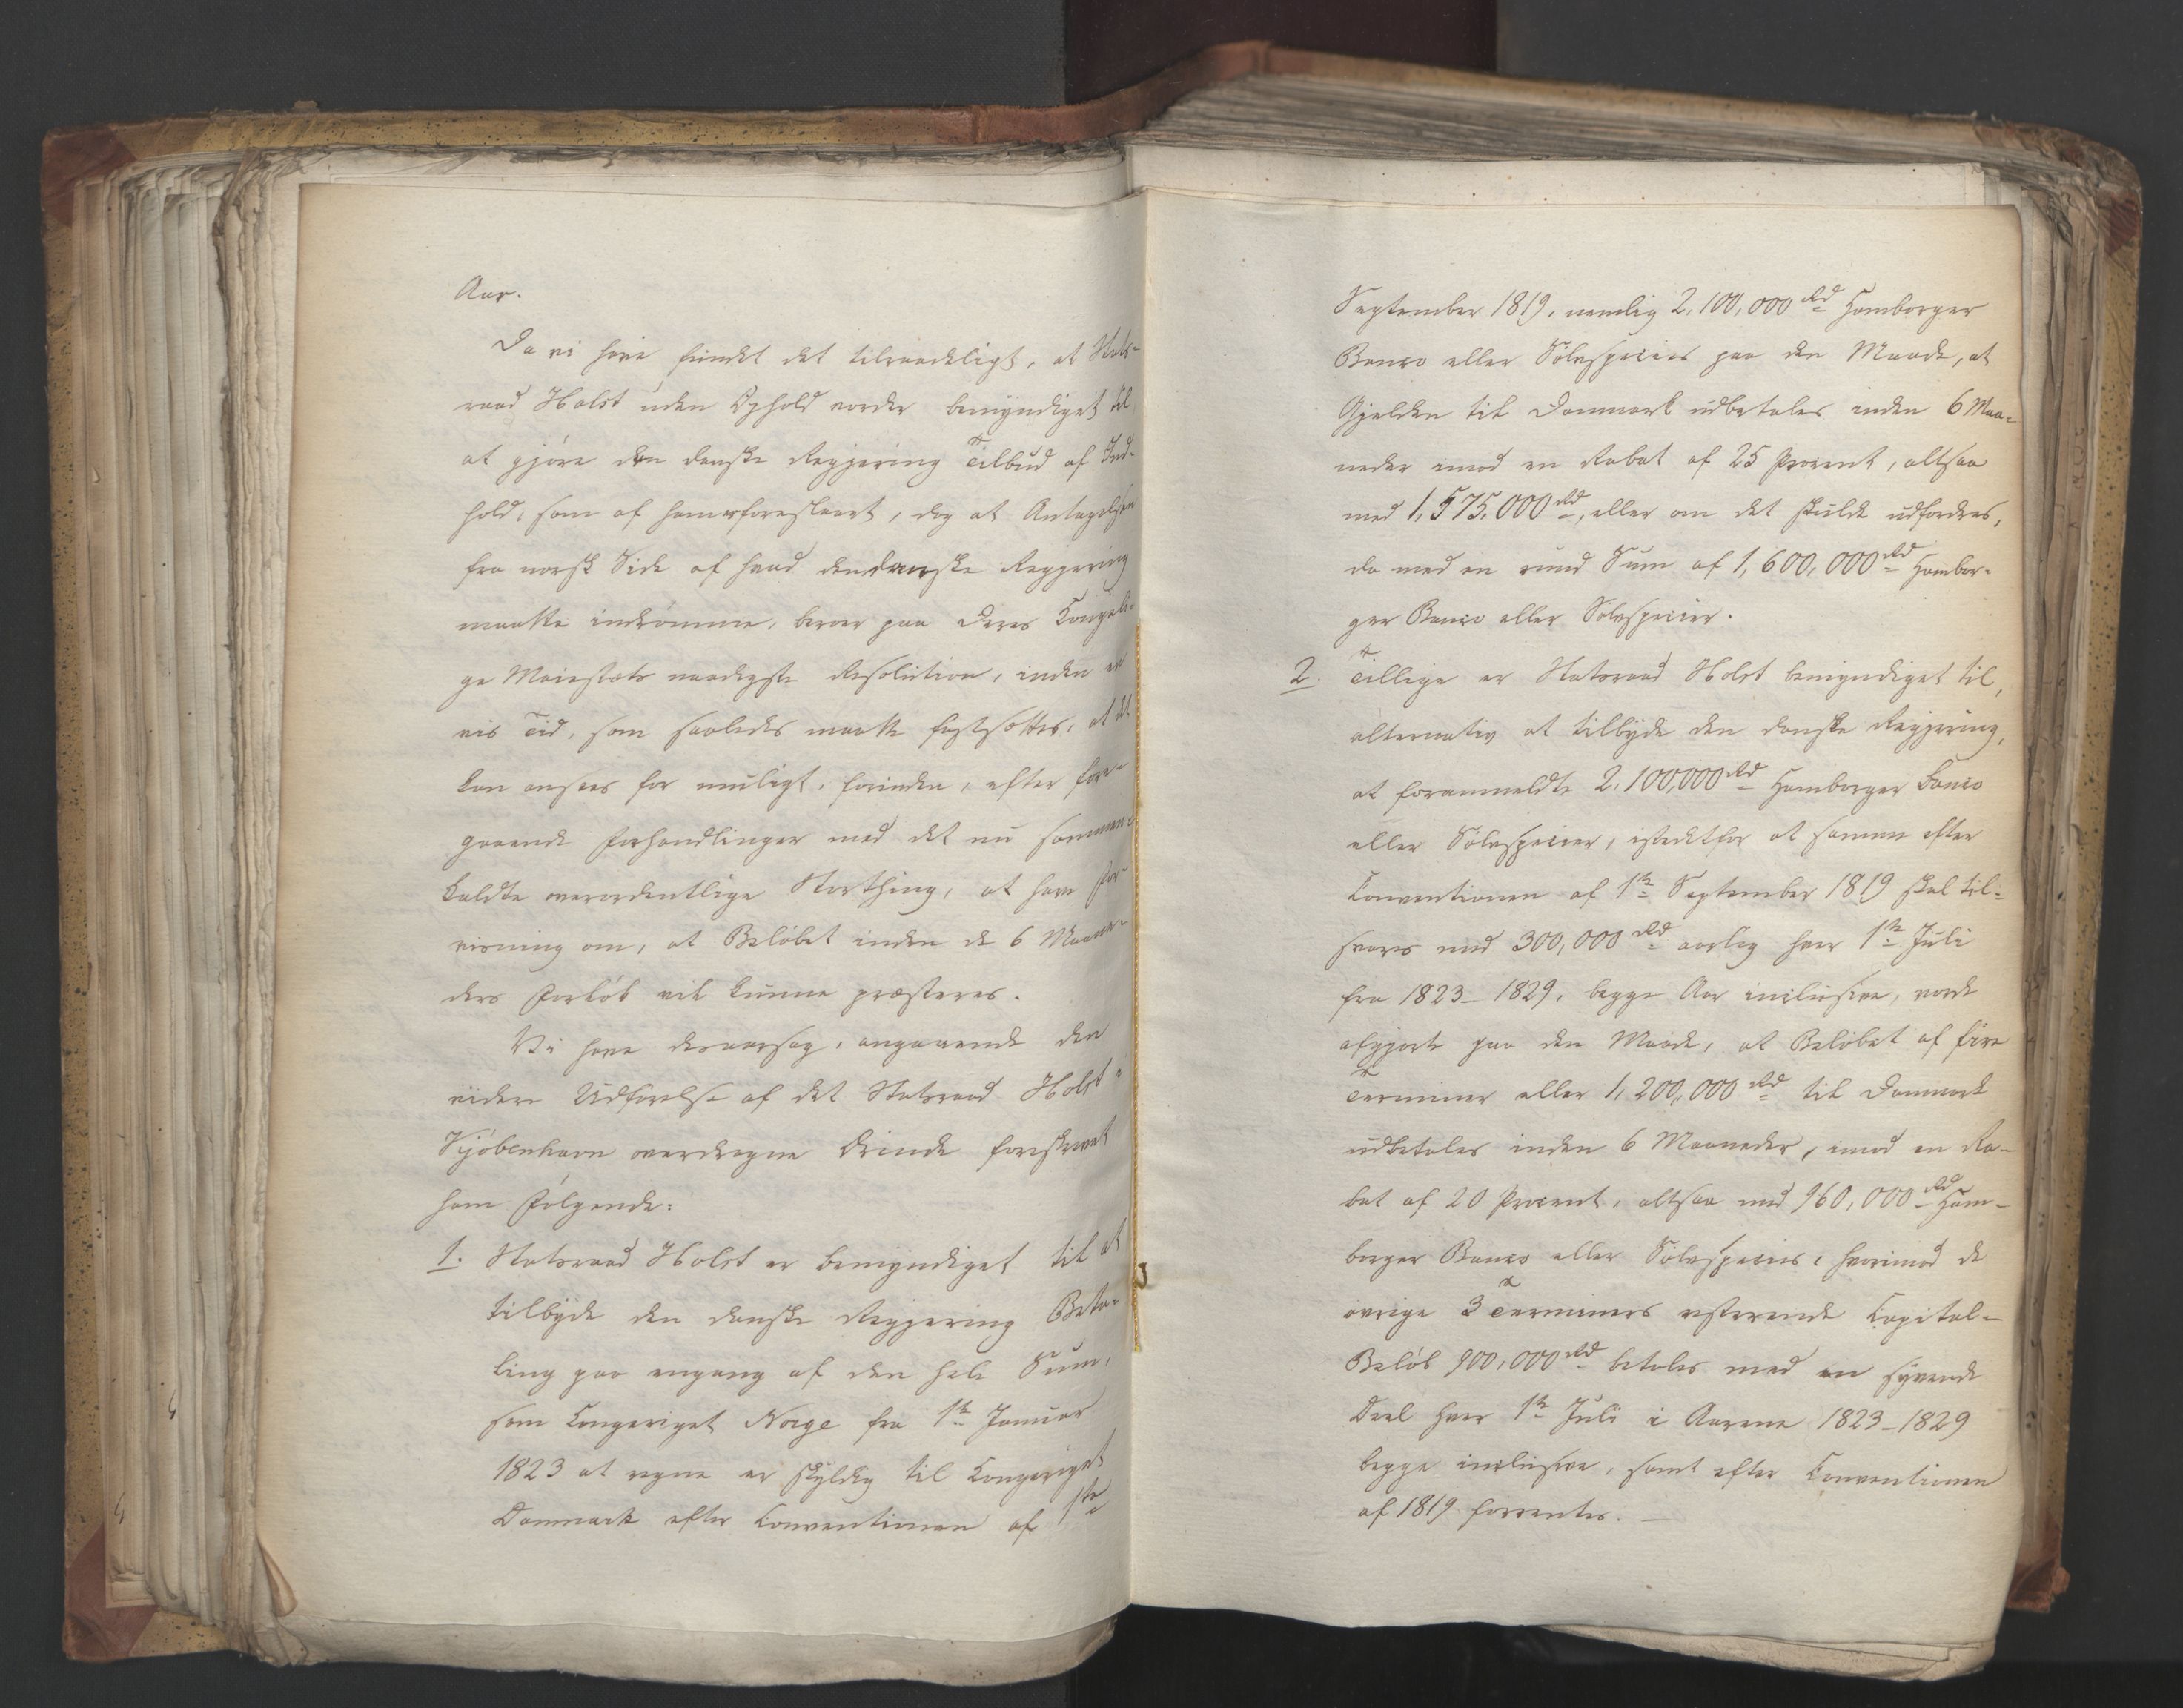 Aar.
Da vi have fundet det tilraadeligt, at Stats-
raad Holst uden Ophold vorder bemyndiget til
at gjøre den danske Regjering Tilbud af Ind-
hold, som af ham er foreslaaet, dog at Antagelsen
fra norsk Side af hvad den danske Regjering
maatte indrømme, beroer paa Deres Kongeli-
ge Majestæts naadigste Resolution, inden en
vis Tid, som saaledes maatte fastsættes, at det
kan ansees for muligt, forinden, efter fore-
gaaende Forhandlinger med det nu sammen-
kaldte overordentlige Storthing, at have For-
visning om, at Beløbet inden de 6 Maane-
ders Forløb vil kunne præsteres.
Vi have desaarsag, angaaende den
videre Udførelse af det Statsraad Holst i
Kjøbenhavn overdragne Ærinde foreskrevet
ham Følgende:
1. Statsraad Holst er bemyndiget til at
tilbyde den danske Regjering Beta-
ling paa engang af den hele Sum,
som Kongeriget Norge fra 1ste Januar
1823 at regne er skyldig til Kongeriget
Danmark efter Conventionen af 1ste
September 1819, nemlig 2,100,000 Rd Hamborger
Banco eller Sølvspecies paa den Maade, at
Gjelden til Danmark udbetales inden 6 Maa-
neder imod en Rabat af 25 Procent, altsaa
med 1,575,000 Rd, eller om det skulde udfordres,
da med en rund Sum af 1,600,000 Rd Hambor-
ger Banco eller Sølvspecier.
2. Tillige er Statsraad Holst bemyndiget til,
alternativ at tilbyde den danske Regjering,
at foranmeldte 2,100,000 Rd Hamborger Banco
eller Sølvspecier, istedetfor at samme efter
Conventionen af 1ste September 1819 skal til-
svares med 300,000 Rd aarlig hver 1ste Juli
fra 1823-1829, begge Aar inclusive, vorde
afgjorte paa den Maade, at Beløbet af fire
Terminer eller 1,200,000 Rd til Danmark
udbetales inden 6 Maaneder, imod en Ra-
bat af 20 Procent, altsaa med 960,000 Rd Ham-
borger Banco eller Sølvspecies, hvorimod de
øvrige 3 Terminers resterende Capital-
Beløb 900,000 Rd betales med en syvende
Deel hver 1ste Juli i Aarene 1823-1829
begge inclusive, samt efter Conventionen
af 1819 forrentes. —